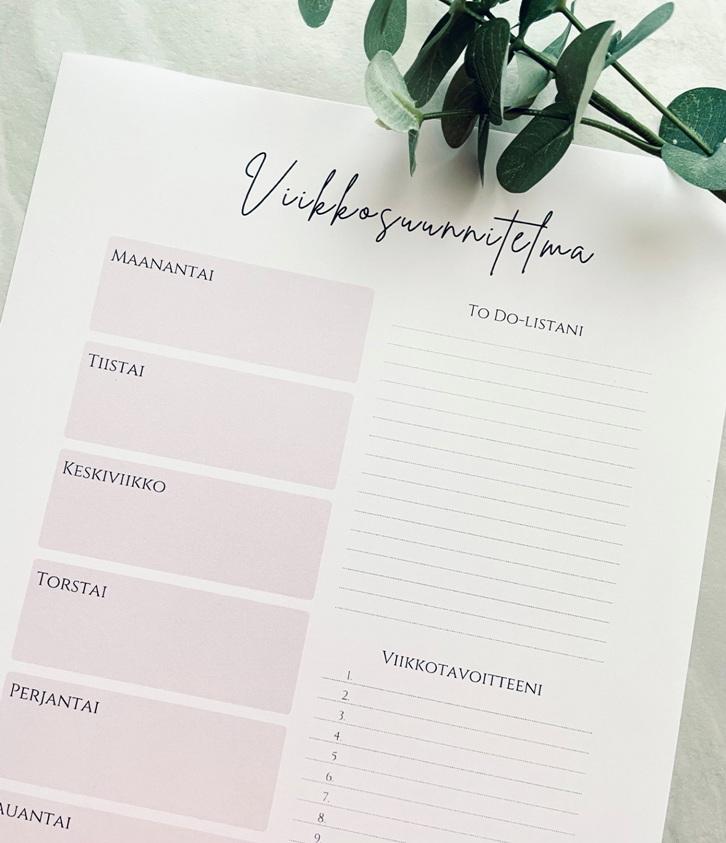 Viikkosuunnitelma
Maanantai
Tiistai
Keskiviikko
Torstai
Perjantai
auantai
To Do-listani
Viikkotavoitteeni
1.
2.
3.
4.
5
6.
7.
8.
9